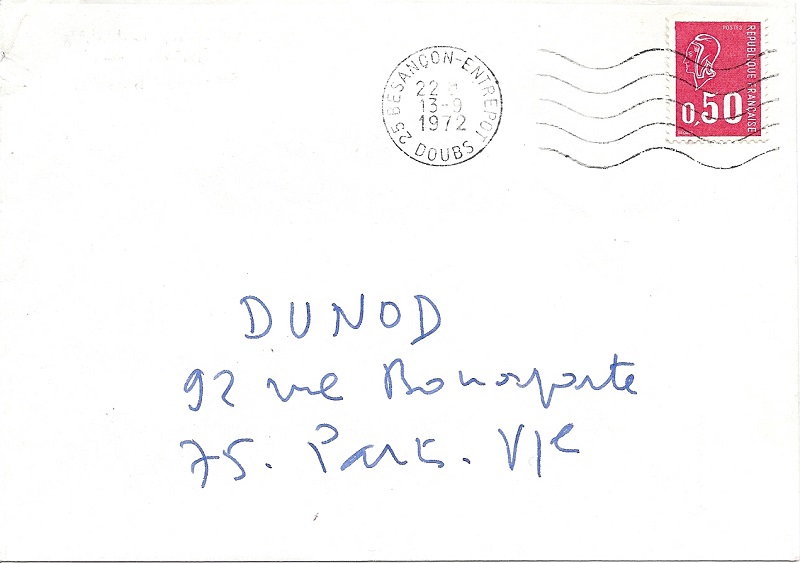 25 BESANÇON-ENTREPOT
22 H
13-9
1972
DOUBS
POSTES
RÉPUBLIQUE FRANÇAISE
0,50
DUNOD
92 rue Bonaparte
75. Paris. VIe